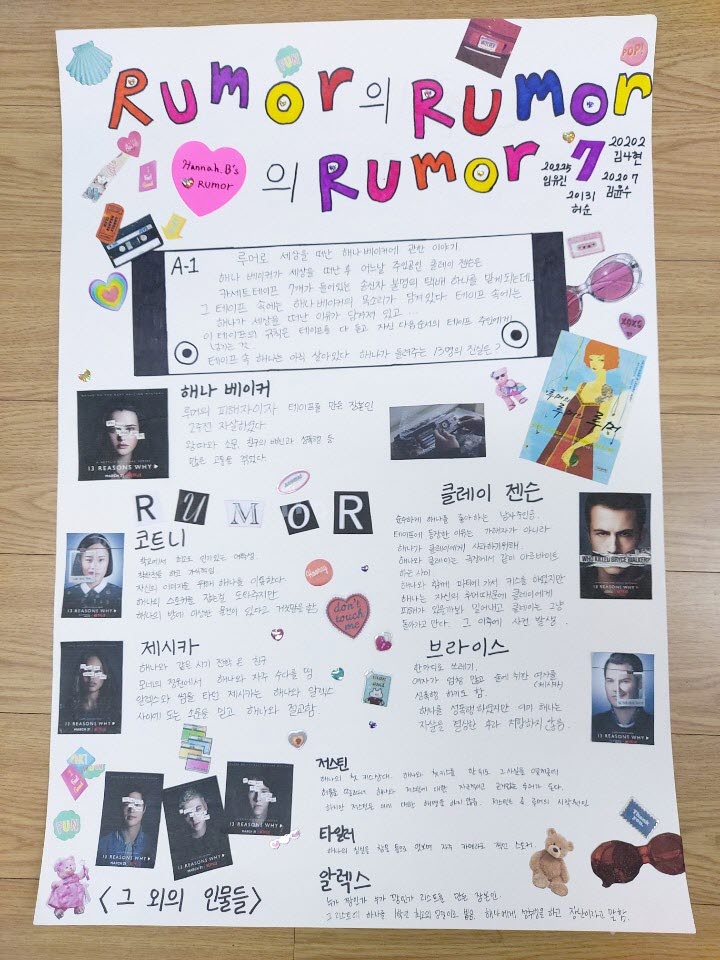 Rumor의 Rumor
의 Rumor 7
Hannah. B's
RUMOR
20202
김나현
20225
임유진
20207
김윤수
20131
허윤
POP!
FUN
A-1
루머로 세상을 떠난 해나 베이커에 관한 이야기.
해나 베이커가 세상을 떠난 후 어느날 주인공인 클레이 젠슨은
카세트 테이프 7개가 들어있는 송신자 불명의 택배 하나를 받게되는데..
그 테이프 속에는 해나 베이커의 목소리가 담겨있다 테이프 속에는
해나가 세상을 떠난 이유가 담겨져 있고 ...
이 테이프의 규칙은 테이프를 다 듣고 자신 다음순서의 테이프 주인에게
넘기는 것
테이프 속 해나는 아직 살아있다 해나가 들려주는 13명의 진실은?
XOXO
해나 베이커
루머의 피해자이자 테이프를 만든 장본인
2주전 자살하였다.
왕따와 소문, 친구의 배신과 성폭행 등
많은 고통을 겪었다.
13 REASONS WHY
루머의
루머의 루머
RUMOR
코트니
학교에서 최고로 인기있는 여학생
자신의 이미지를 위해 해나를 이용한다.
해나의 스토커를 잡는걸 도와주지만
13 REASONS WHY
Hooray
don't
touch
me
클레이 젠슨
순수하게 해나를 좋아하는 남자주인공.
테이프에 등장한 이유는 가해자가 아니라
해나가 클레이에게 사과하기위해
해나와 클레이는 극장에서 같이 아르바이트
하는 사이
해나와 함께 파티에 가서 키스를 하였지만
해나는 자신의 루머때문에 클레이에게
피해가 있을까봐 밀어내고 클레이는 그냥
돌아가고 만다. 그 이후에 사건 발생.
WHO KILLED BRYCE WALKER?
제시카
해나와 같은 시기 전학 온 친구
모네의 정원에서 해나와 자주 수다를 떪
알렉스와 썸을 타던 제시카는 해나와 알렉스
사이에 도는 소문을 믿고 해나와 절교함
13 REASONS WHY
브라이스
한마디로 쓰레기.
여자가 엄청 많고 술에 취한 여자를
(제시카)
성폭행 하기도 함
해나를 성폭행 하였지만 이미 해나는
자살을 결심한 후라 저항하지 않음.
13 REASONS WHY
FUN
13 REASONS WHY
13 REASONS WHY
13 REASONS WHY
<그 외의 인물들>
저스틴
해나의 첫 키스상대.
타일러
알렉스
누가 잘났고 누가 못났나 리스트를 만든 장본인.
Thank
you